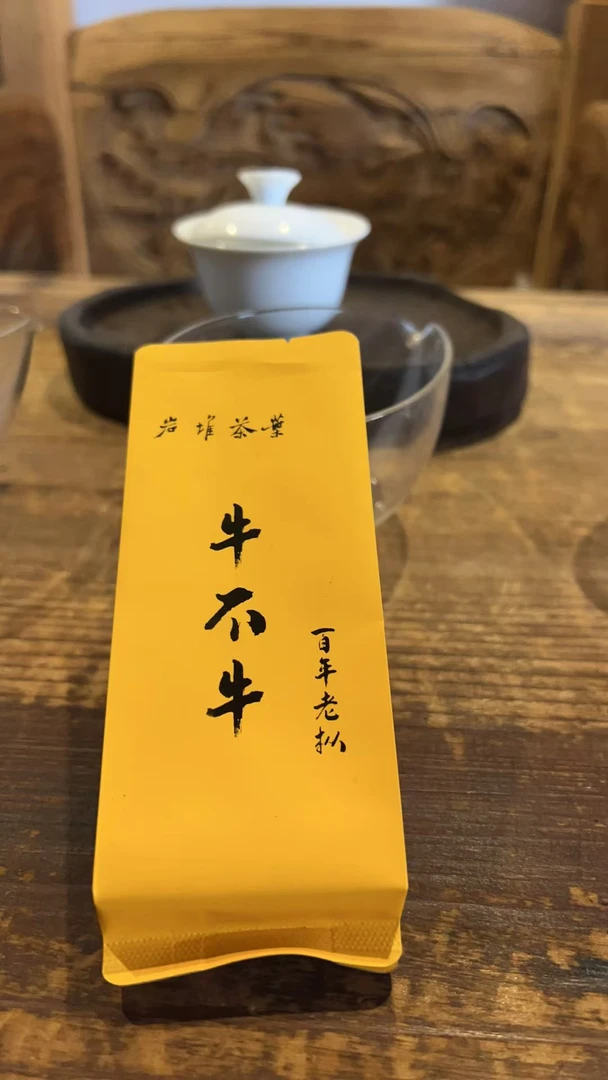 岩堆茶葉
牛不牛
百年老枞